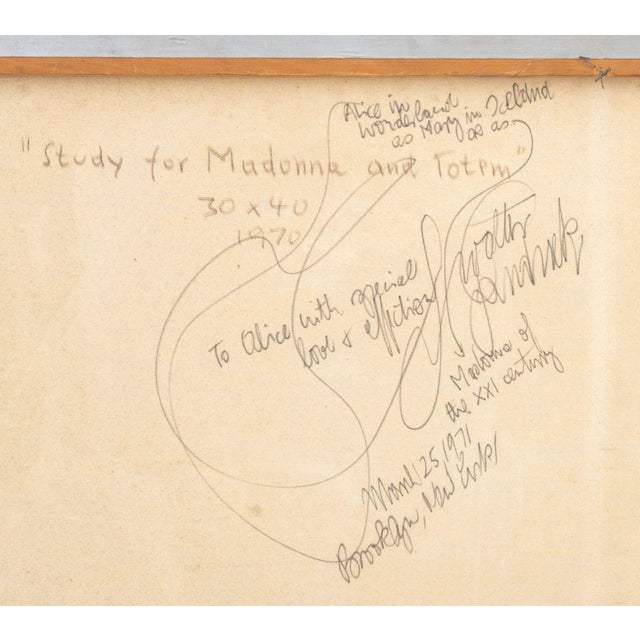 Alice in
Wonderland
as Mary in Iceland
as as
"Study for Madonna and Totem"
30 x 40
1970
To Alice with special
love & affection
Walter
Madonna of
the XXI century
March 25, 1971
Brooklyn, New York